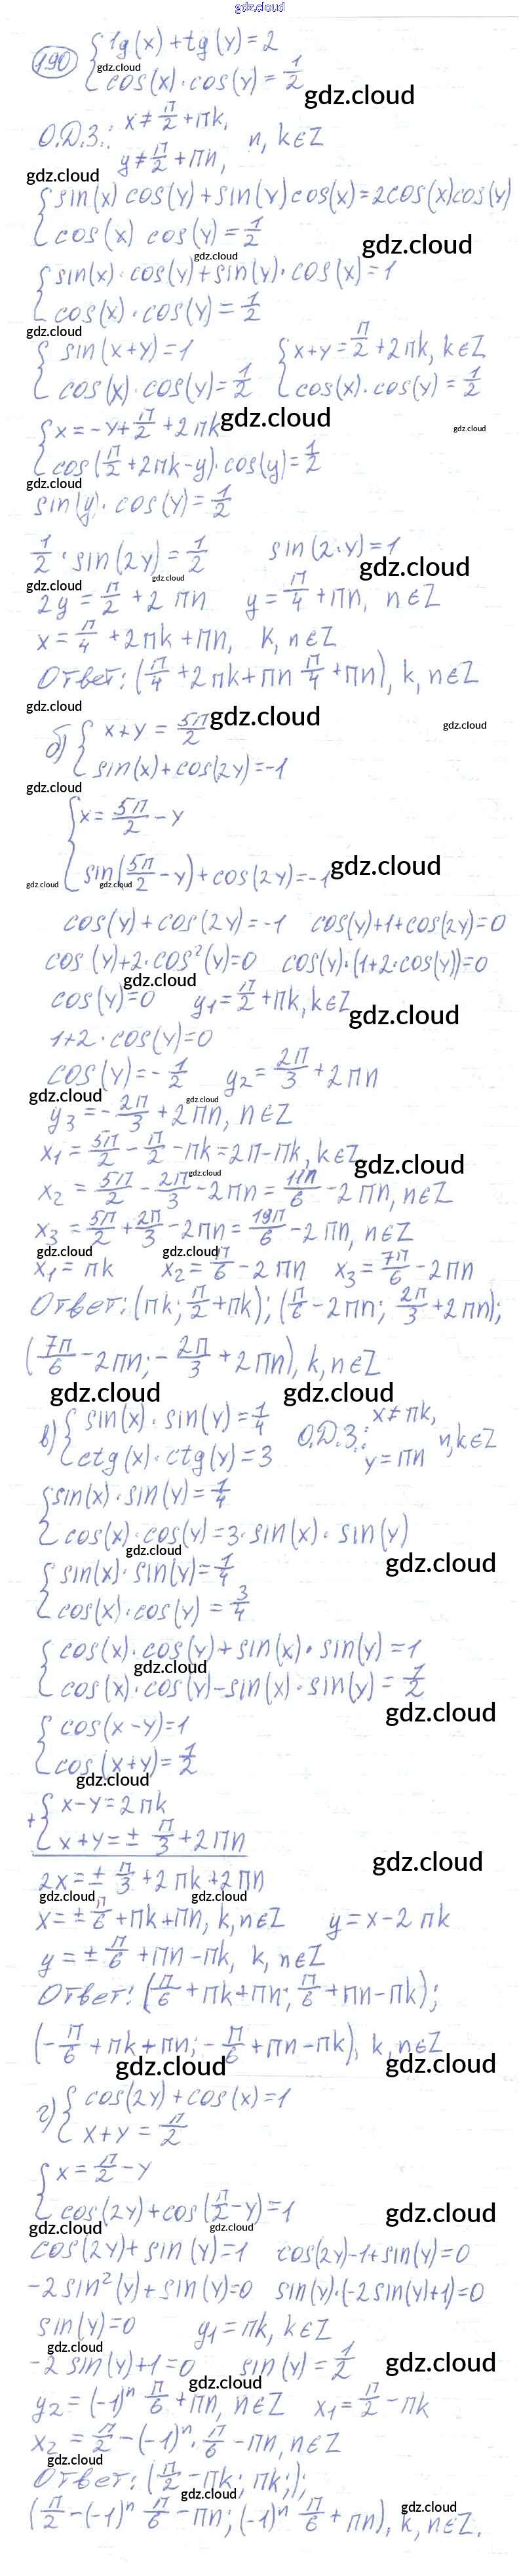 gdz.cloud
190 { tg(x) + tg(y) = 2
gdz.cloud
cos(x)·cos(y) = 1/2
gdz.cloud
О.Д.З.: x ≠ π/2 + πk, y ≠ π/2 + πn, n, k ∈ Z
gdz.cloud
{ sin(x) cos(y) + sin(y) cos(x) = 2cos(x)cos(y)
cos(x) cos(y) = 1/2
gdz.cloud
gdz.cloud
{ sin(x)·cos(y) + sin(y)·cos(x) = 1
cos(x)·cos(y) = 1/2
gdz.cloud
{ sin(x+y) = 1 { x+y = π/2 + 2πk, k ∈ Z
cos(x)·cos(y) = 1/2 cos(x)·cos(y) = 1/2
{ x = -y + π/2 + 2πk
gdz.cloud
gdz.cloud
cos(π/2 + 2πk - y)·cos(y) = 1/2
gdz.cloud
sin(y)·cos(y) = 1/2
1/2·sin(2y) = 1/2 sin(2·y) = 1
gdz.cloud
gdz.cloud
gdz.cloud
2y = π/2 + 2πn y = π/4 + πn, n ∈ Z
x = π/4 + 2πk + πn, k, n ∈ Z
Ответ: (π/4 + 2πk + πn π/4 + πn), k, n ∈ Z
gdz.cloud
б) { x+y = 5π/2
gdz.cloud
gdz.cloud
sin(x) + cos(2y) = -1
gdz.cloud
{ x = 5π/2 - y
gdz.cloud
sin(5π/2 - y) + cos(2y) = -1
gdz.cloud
gdz.cloud
cos(y) + cos(2y) = -1 cos(y) + 1 + cos(2y) = 0
cos(y) + 2·cos²(y) = 0 cos(y)·(1 + 2·cos(y)) = 0
gdz.cloud
cos(y) = 0 y₁ = π/2 + πk, k ∈ Z
gdz.cloud
1 + 2·cos(y) = 0
cos(y) = -1/2 y₂ = 2π/3 + 2πn
gdz.cloud
gdz.cloud
y₃ = -2π/3 + 2πn, n ∈ Z
x₁ = 5π/2 - π/2 - πk = 2π - πk, k ∈ Z
gdz.cloud
gdz.cloud
x₂ = 5π/2 - 2π/3 - 2πn = 11π/6 - 2πn, n ∈ Z
x₃ = 5π/2 + 2π/3 - 2πn = 19π/6 - 2πn, n ∈ Z
gdz.cloud
gdz.cloud
x₁ = πk x₂ = π/6 - 2πn x₃ = 7π/6 - 2πn
Ответ: (πk; π/2 + πk); (π/6 - 2πn; 2π/3 + 2πn);
(7π/6 - 2πn; -2π/3 + 2πn), k, n ∈ Z
gdz.cloud
gdz.cloud
в) { sin(x)·sin(y) = 1/4 О.Д.З.: x ≠ πk,
ctg(x)·ctg(y) = 3 y = πn n, k ∈ Z
{ sin(x)·sin(y) = 1/4
cos(x)·cos(y) = 3·sin(x)·sin(y)
gdz.cloud
gdz.cloud
{ sin(x)·sin(y) = 1/4
cos(x)·cos(y) = 3/4
{ cos(x)·cos(y) + sin(x)·sin(y) = 1
gdz.cloud
cos(x)·cos(y) - sin(x)·sin(y) = 1/2
gdz.cloud
{ cos(x-y) = 1
cos(x+y) = 1/2
gdz.cloud
+ { x-y = 2πk
x+y = ± π/3 + 2πn
gdz.cloud
2x = ± π/3 + 2πk + 2πn
gdz.cloud
gdz.cloud
x = ± π/6 + πk + πn, k, n ∈ Z y = x - 2πk
y = ± π/6 + πn - πk, k, n ∈ Z
Ответ: (π/6 + πk + πn; π/6 + πn - πk);
(-π/6 + πk + πn; -π/6 + πn - πk), k, n ∈ Z
gdz.cloud
gdz.cloud
г) { cos(2y) + cos(x) = 1
x+y = π/2
{ x = π/2 - y
cos(2y) + cos(π/2 - y) = 1
gdz.cloud
gdz.cloud
gdz.cloud
cos(2y) + sin(y) = 1 cos(2y) - 1 + sin(y) = 0
-2sin²(y) + sin(y) = 0 sin(y)·(-2sin(y) + 1) = 0
sin(y) = 0 y₁ = πk, k ∈ Z
gdz.cloud
-2 sin(y) + 1 = 0 sin(y) = 1/2
gdz.cloud
gdz.cloud
y₂ = (-1)ⁿ π/6 + πn, n ∈ Z x₁ = π/2 - πk
x₂ = π/2 - (-1)ⁿ·π/6 - πn, n ∈ Z
gdz.cloud
Ответ: (π/2 - πk; πk;);
gdz.cloud
gdz.cloud
(π/2 - (-1)ⁿ π/6 - πn; (-1)ⁿ π/6 + πn), k, n ∈ Z.